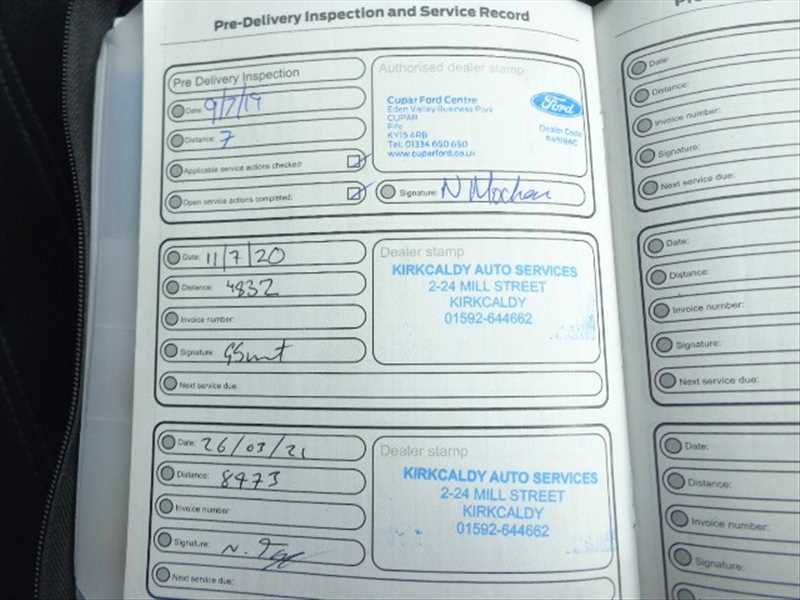 Pre-Delivery Inspection and Service Record
Pre Delivery Inspection
Date: 9/7/19
Distance: 7
Applicable service actions checked:
Open service actions completed:
Authorised dealer stamp
Cupar Ford Centre
Eden Valley Business Park
CUPAR
Fife
KY15 4RB
Tel: 01334 650 650
www.cuparford.co.uk
Ford
Dealer Code
Signature:
Date: 11/7/20
Distance: 4832
Invoice number:
Signature:
Next service due:
Dealer stamp
KIRKCALDY AUTO SERVICES
2-24 MILL STREET
KIRKCALDY
01592-644662
Date: 26/03/21
Distance: 8473
Invoice number:
Signature:
Next service due:
Dealer stamp
KIRKCALDY AUTO SERVICES
2-24 MILL STREET
KIRKCALDY
01592-644662
Date:
Distance:
Invoice number:
Signature:
Next service due:
Date:
Distance:
Invoice number:
Signature:
Next service due:
Date:
Distance:
Invoice number:
Signature: